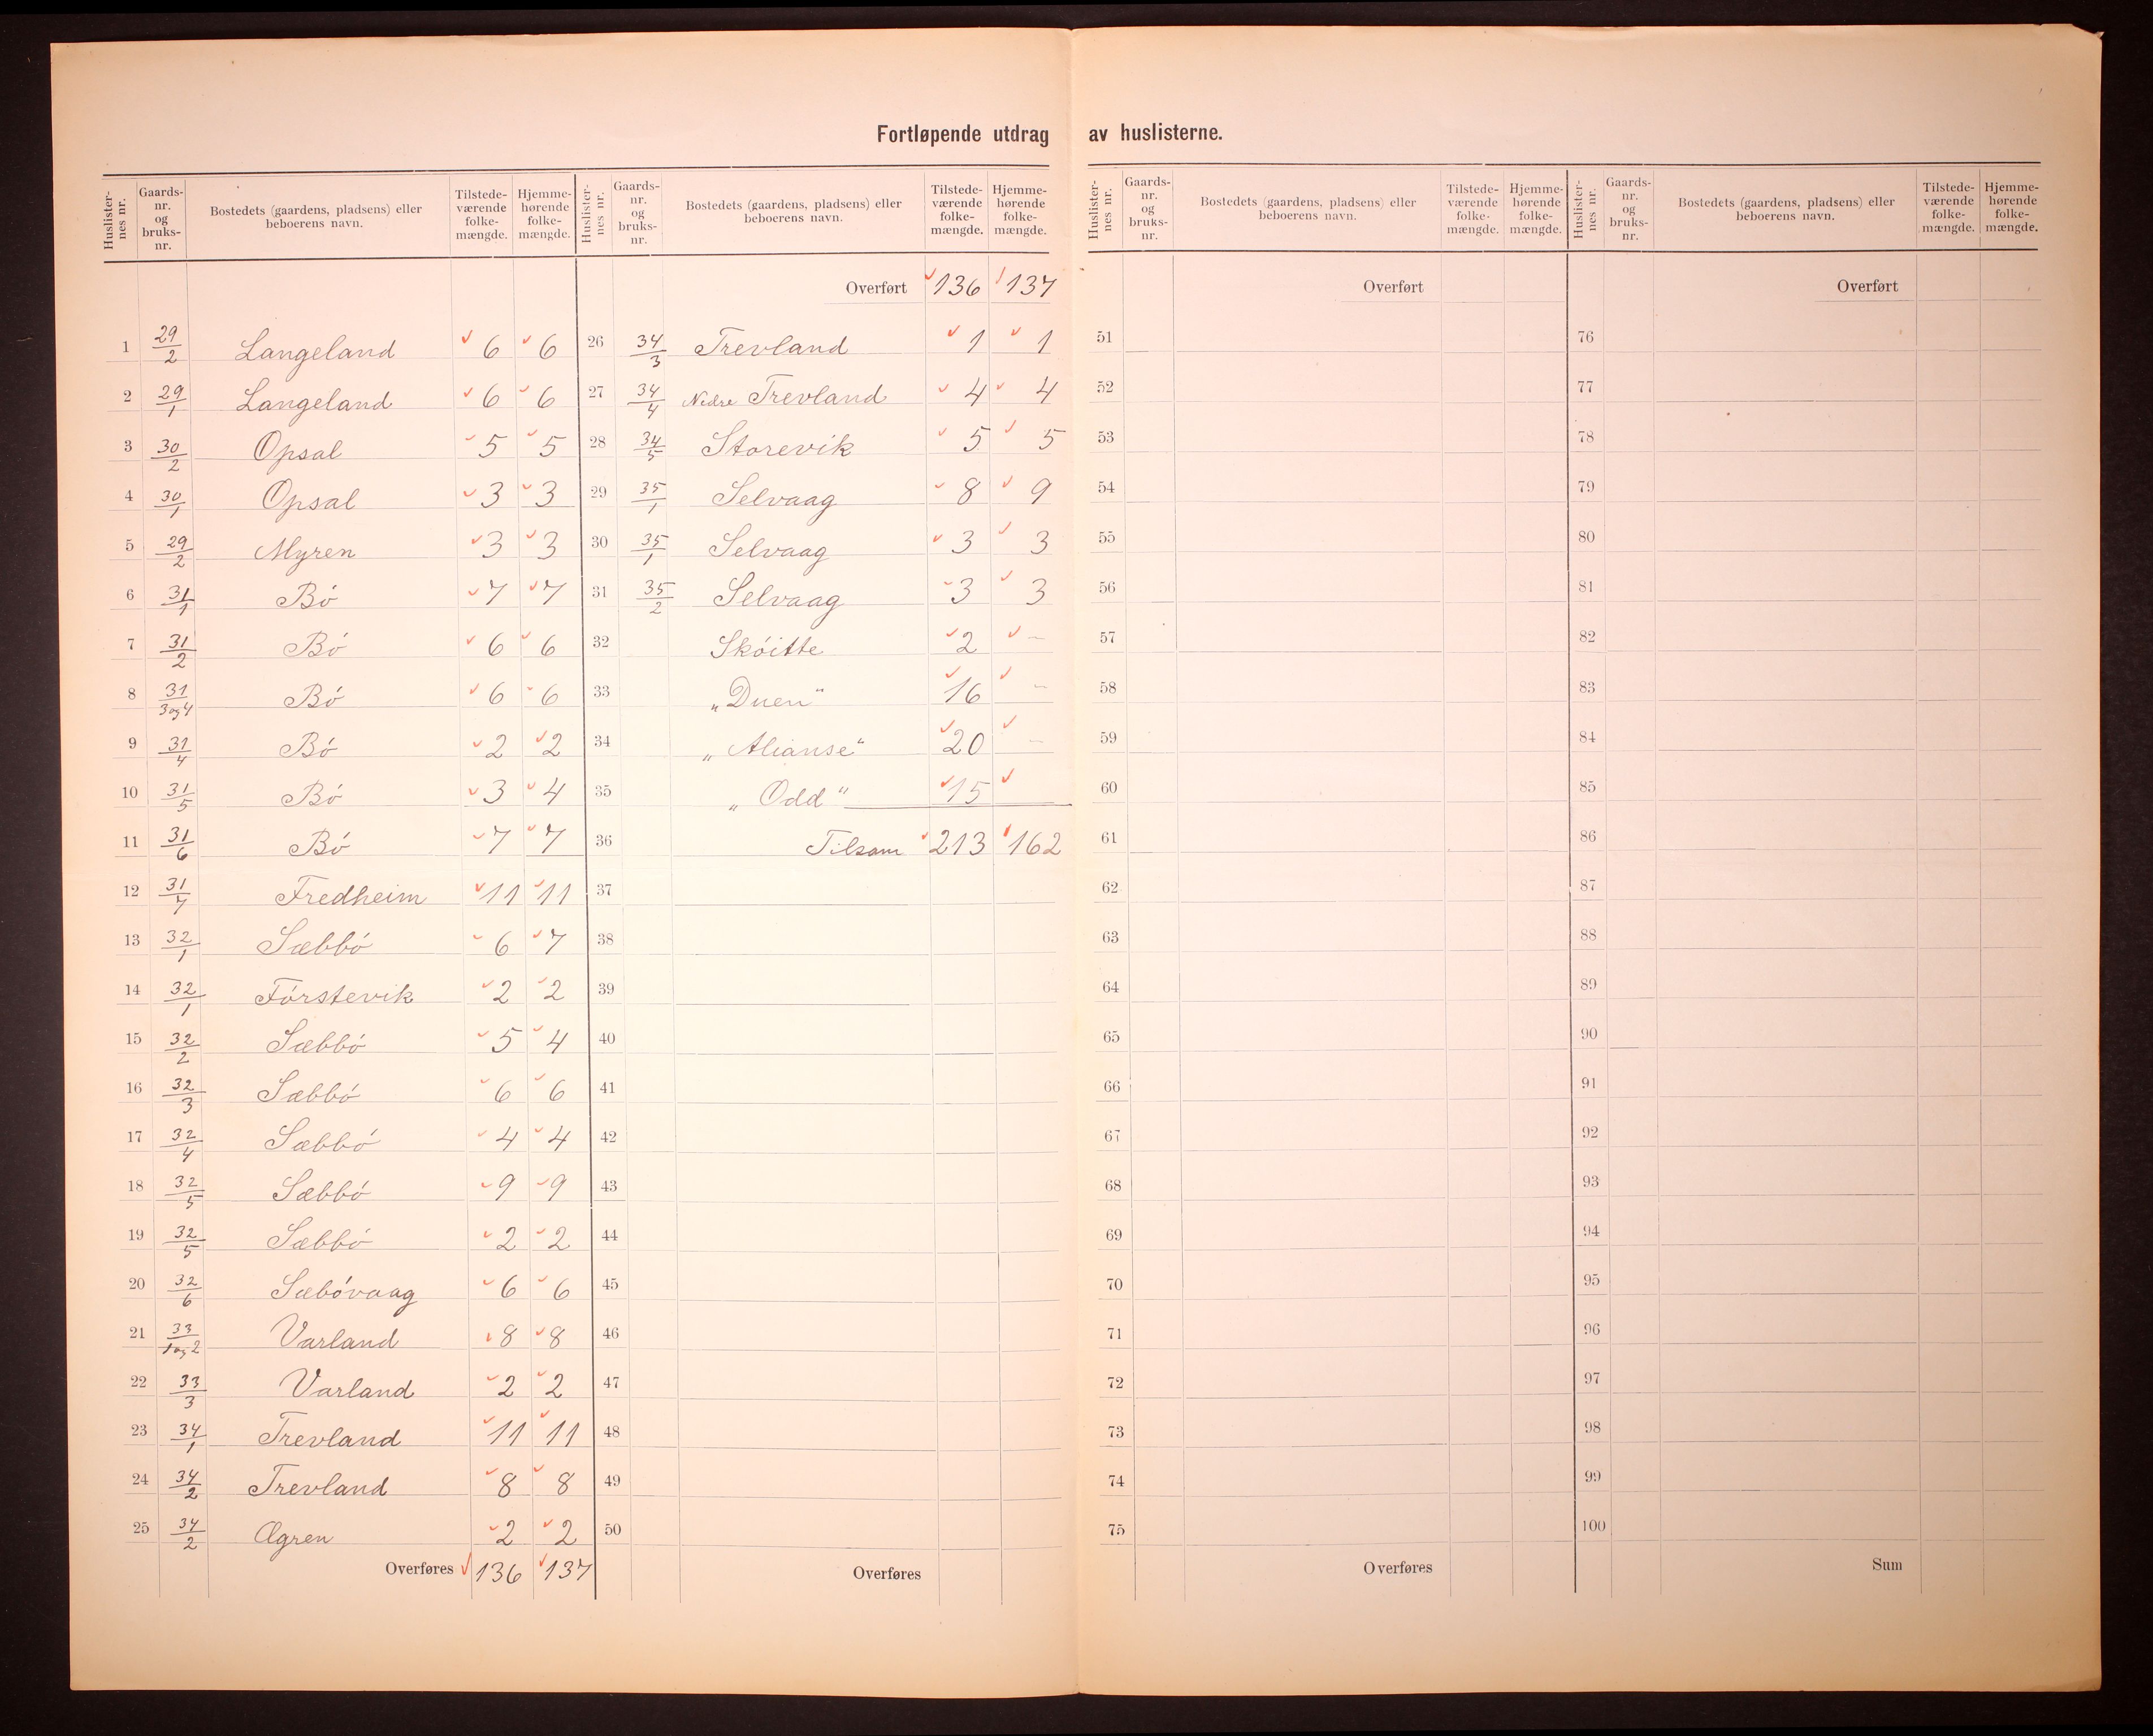 Fortløpende utdrag av huslisterne.
Huslister-nes nr. Gaards-nr. og bruks-nr. Bostedets (gaardens, pladsens) eller beboerens navn. Tilstede-værende folke-mængde. Hjemme-hørende folke-mængde.
1 29/2 Langeland 6 6
2 29/1 Langeland 6 6
3 30/2 Opsal 5 5
4 30/1 Opsal 3 3
5 29/2 Myren 3 3
6 31/1 Bó 7 7
7 31/2 Bó 6 6
8 31/3 og 4 Bó 6 6
9 31/4 Bó 2 2
10 31/5 Bó 3 4
11 31/6 Bó 7 7
12 31/7 Fredheim 11 11
13 32/1 Sæbbó 6 7
14 32/1 Fórstevik 2 2
15 32/2 Sæbbó 5 4
16 32/3 Sæbbó 6 6
17 32/4 Sæbbó 4 4
18 32/5 Sæbbó 9 9
19 32/5 Sæbbó 2 2
20 32/6 Sæbóvaag 6 6
21 33/1 og 2 Varland 8 8
22 33/3 Varland 2 2
23 34/1 Trevland 11 11
24 34/2 Trevland 8 8
25 34/2 Ægren 2 2
Overføres 136 137
Huslister-nes nr. Gaards-nr. og bruks-nr. Bostedets (gaardens, pladsens) eller beboerens navn. Tilstede-værende folke-mængde. Hjemme-hørende folke-mængde.
Overført 136 137
26 34/3 Trevland 1 1
27 34/4 Nedre Trevland 4 4
28 34/5 Storevik 5 5
29 35/1 Selvaag 8 9
30 35/1 Selvaag 3 3
31 35/2 Selvaag 3 3
32 Skóitte 2 –
33 „Duen“ 16 –
34 „Alianse“ 20 –
35 „Odd“ 15
36 Tilsam 213 162
37
38
39
40
41
42
43
44
45
46
47
48
49
50
Overføres
Huslister-nes nr. Gaards-nr. og bruks-nr. Bostedets (gaardens, pladsens) eller beboerens navn. Tilstede-værende folke-mængde. Hjemme-hørende folke-mængde.
Overført
51
52
53
54
55
56
57
58
59
60
61
62
63
64
65
66
67
68
69
70
71
72
73
74
75
Overføres
Huslister-nes nr. Gaards-nr. og bruks-nr. Bostedets (gaardens, pladsens) eller beboerens navn. Tilstede-værende folke-mængde. Hjemme-hørende folke-mængde.
Overført
76
77
78
79
80
81
82
83
84
85
86
87
88
89
90
91
92
93
94
95
96
97
98
99
100
Sum